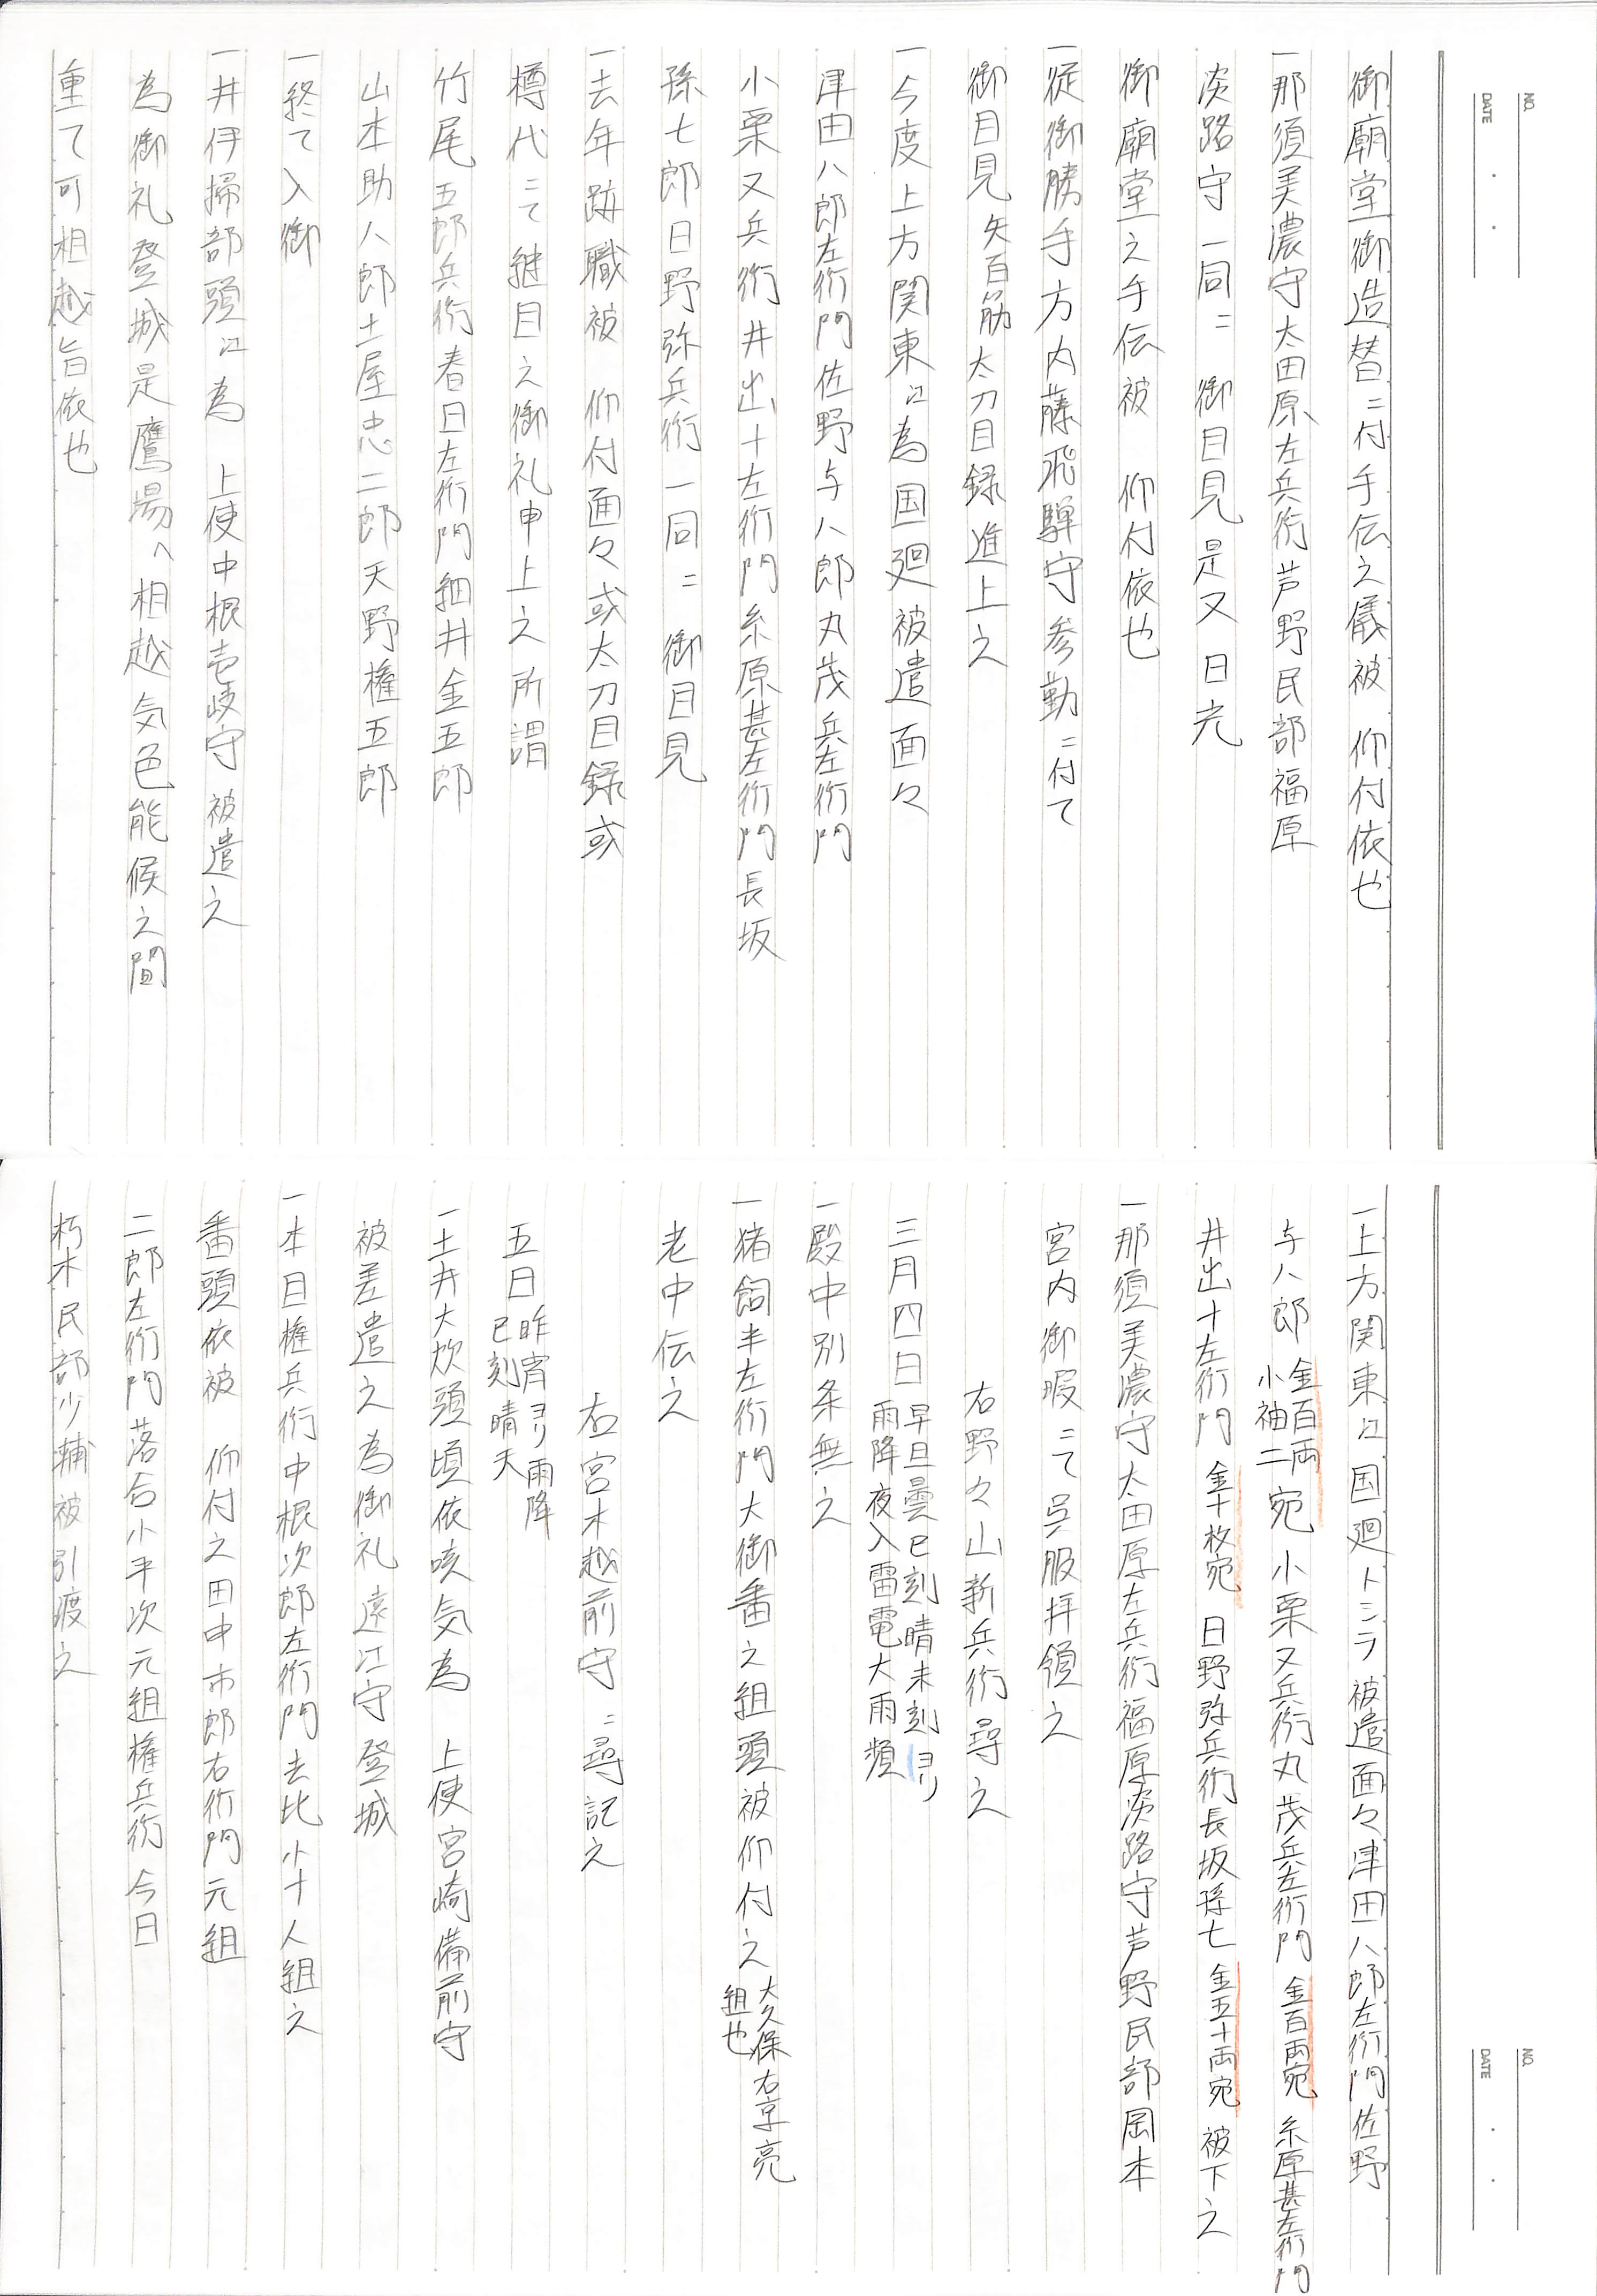 NO.
DATE
御廟堂御造替ニ付手伝之儀被 仰付依也
一那須美濃守太田原左兵衛芦野民部福原
淡路守一同ニ 御目見是又日光
御廟堂之手伝被 仰付依也
一従御勝手方内藤飛騨守参勤ニ付て
御目見 矢百筋太刀目録進上之
一今度上方関東江為国廻被遣面々
津田八郎左衛門佐野与八郎丸茂兵左衛門
小栗又兵衛井出十左衛門糸原甚左衛門長坂
孫七郎日野弥兵衛一同ニ 御目見
一去年跡職被 仰付面々或太刀目録或
樽代ニて継目之御礼申上之所謂
竹尾五郎兵衛春日左衛門細井金五郎
山本助八郎土屋忠二郎天野権五郎
一終て入御
一井伊掃部頭江為 上使中根壱岐守被遣之
為御礼登城是鷹場へ相越気色能候之間
重て可相越旨依也
NO.
DATE
一上方関東江国廻トシテ被遣面々津田八郎左衛門佐野
与八郎 金百両 小袖二 宛 小栗又兵衛丸茂兵左衛門 金百両宛 糸原甚左衛門
井出十左衛門 金十枚宛 日野弥兵衛長坂孫七 金五十両宛 被下之
一那須美濃守太田原左兵衛福原淡路守芦野民部岡本
宮内御暇ニて呉服拝領之
右野々山新兵衛尋之
三月四日 早旦曇巳刻晴未刻ヨリ 雨降夜入雷電大雨頻
一殿中別条無之
一猪飼半左衛門大御番之組頭被仰付之 大久保右京亮 組也
老中伝之
右宮木越前守ニ尋記之
五日 昨宵ヨリ雨降 巳刻晴天
一土井大炊頭頃依咳気為 上使宮崎備前守
被差遣之為御礼遠江守登城
一本目権兵衛中根次郎左衛門去比小十人組之
番頭依被 仰付之田中市郎右衛門元組
二郎左衛門落合小平次元組権兵衛今日
朽木民部少輔被引渡之